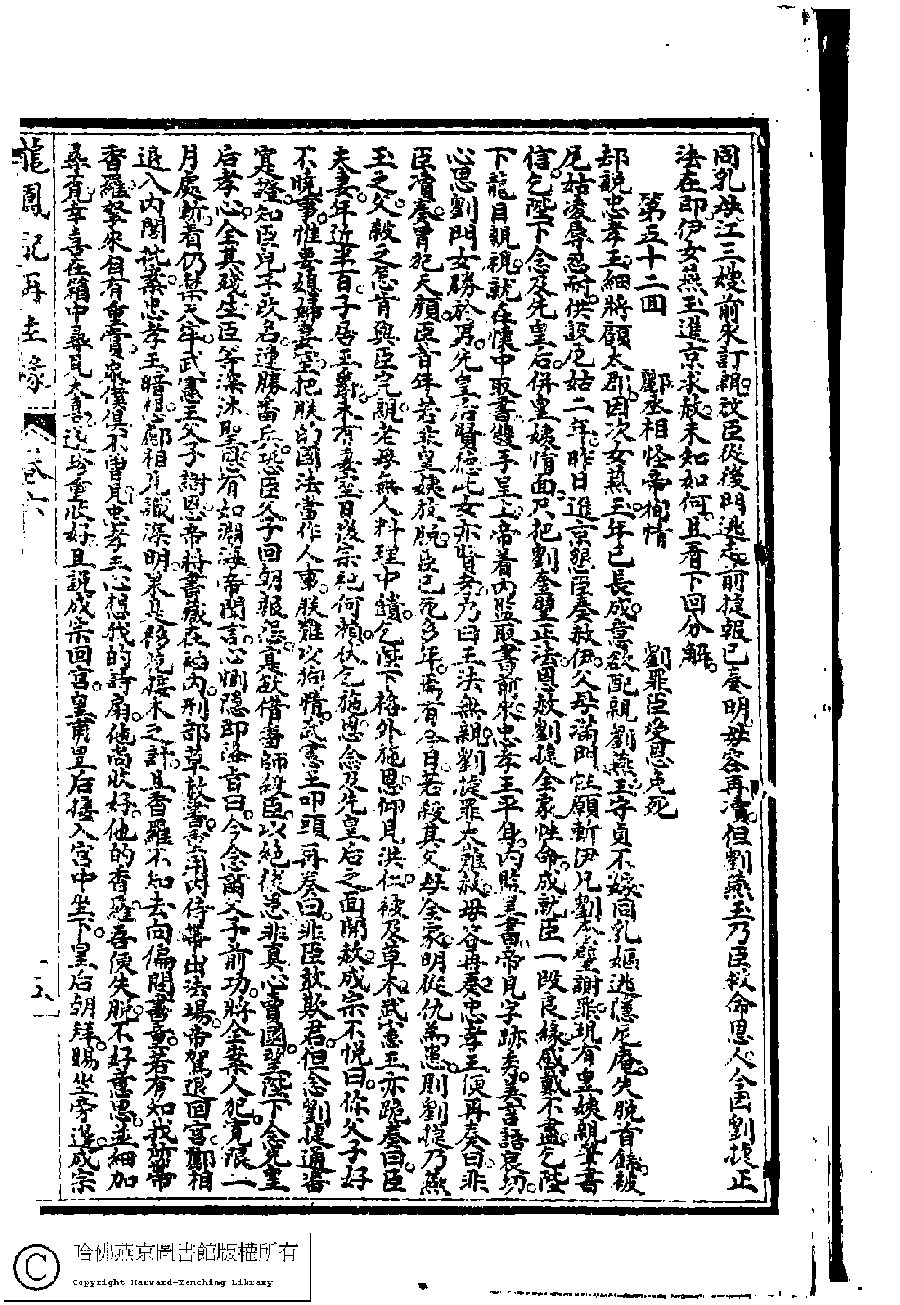 同乳母江三嫂前來訂親改臣從後門逃走前捷報已奏明毋容再瀆但劉燕玉乃臣救命恩人今因劉捷正
法在即伊女燕玉進京求赦未知如何且看下回分解
第五十二回 酈丞相怪帝徇情 劉罪臣受恩免死
却說忠孝王細將顧太郡因次女燕玉年已長成意欲配親劉燕玉守貞不嫁同乳嫗逃隱尼庵失脫首餙被
尼姑凌辱忍耐供設尼姑二年昨日進京懇臣奏赦伊父母滿門性願斬伊兄劉奎璧謝罪現有皇姨親筆書
信乞陛下念及先皇后併皇姨情面只把劉奎璧正法恩赦劉捷全家性命成就臣一段良緣感戴不盡乞陛
下龍目親視就在懷中取書雙手呈上帝着內監取書前來忠孝王平身內監呈書帝見字跡秀美言語哀切
心思劉門女勝於男先皇后賢德此女亦皆孝乃曰王法無親劉捷罪大難赦毋容再奏忠孝王便再奏曰非
臣瀆奏冒犯天顏臣昔年若非皇姨放脫臣已死多年焉有今日若殺其父母全家明從仇為患則劉捷乃燕
玉之父殺之怎肯與臣完親老母無人料理中饋乞陛下格外施恩仰見洪仁被及草木武憲王亦跪奏曰臣
夫妻年近半百子居王爵未有妻室日後宗祀何賴伏乞施恩念及先皇后之面開赦成宗不悅曰你父子好
不曉事惟要媳婦妻室把朕的國法當作人事朕難以狥情武憲王叩頭再奏曰非臣敢欺君但念劉捷通番
寔證知臣兒子改名連勝番兵恐臣父子回朝報怨寔欲借番師殺臣以絕後患非真心賣國望陛下念先皇
后孝心全其殘生臣等深沐聖恩有如淵海帝聞言心惻隱即降旨曰今念爾父子前功將全案人犯寬限一
月處斬着仍禁天牢武憲王父子謝恩帝將書藏在袖內刑部草赦書與內侍等出法場帝駕退回宮酈相
退入內閣批案忠孝王暗想酈相見識深明果是移花接木之計且香羅不知去向偏閱書章若有知我訪帶
香羅娶來自有重賞家僕俱不曾見忠孝王心想我的詩扇他尚收好他的香羅吾便失脫不好意思並細加
尋覓幸喜在箱中尋見大喜這珍重收好且說成宗回宮皇甫皇后接入宮中坐下皇后朝拜賜坐旁邊成宗
龍鳳配再生緣 卷六 五
哈佛燕京圖書館版權所有
Copyright Harvard-Yenching Library